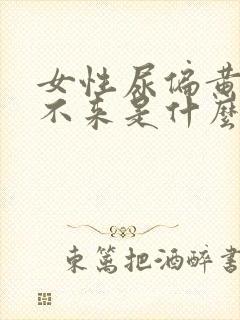 女性尿偏黄
不来是什麼
東篱把酒醉書